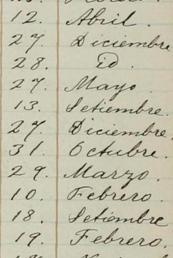 12. Abril.
27. Diciembre
28. id
27. Mayo
13. Setiembre.
27. Diciembre.
31. Octubre.
29. Marzo.
10. Febrero.
18. Setiembre
19. Febrero.